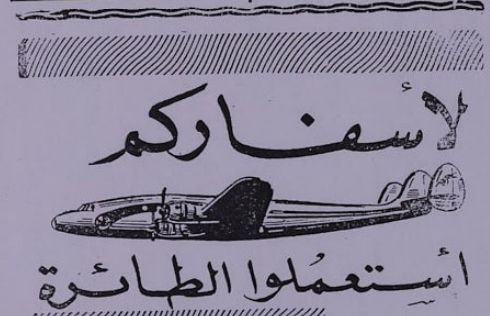 لأسفاركم
استعملوا الطائرة